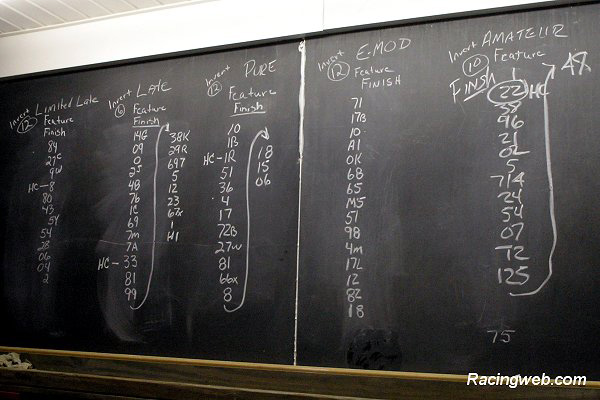 Invert Limited Late
12 Feature
Finish
89
27c
9W
HC-8
80
43
5Y
54
28
06
04
2
Invert LATE
6 Feature
Finish
14G
09
0
25
48
76
1C
69
7m
7A
HC-33
81
99
38K
29R
697
5
12
23
67x
1
H1
Invert PURE
12 Feature
Finish
10
1B
HC-1R
51
36
4
17
72B
27W
81
66x
8
18
15
06
Invert E-MOD
12 Feature
FINISH
71
17B
10
A1
OK
68
65
M5
51
98
4m
17L
12
82
18
Invert AMATEUR
10 Feature
FINISH
1
22 HC
58
96
21
02
5
714
24
54
07
72
125
48
75
Racingweb.com